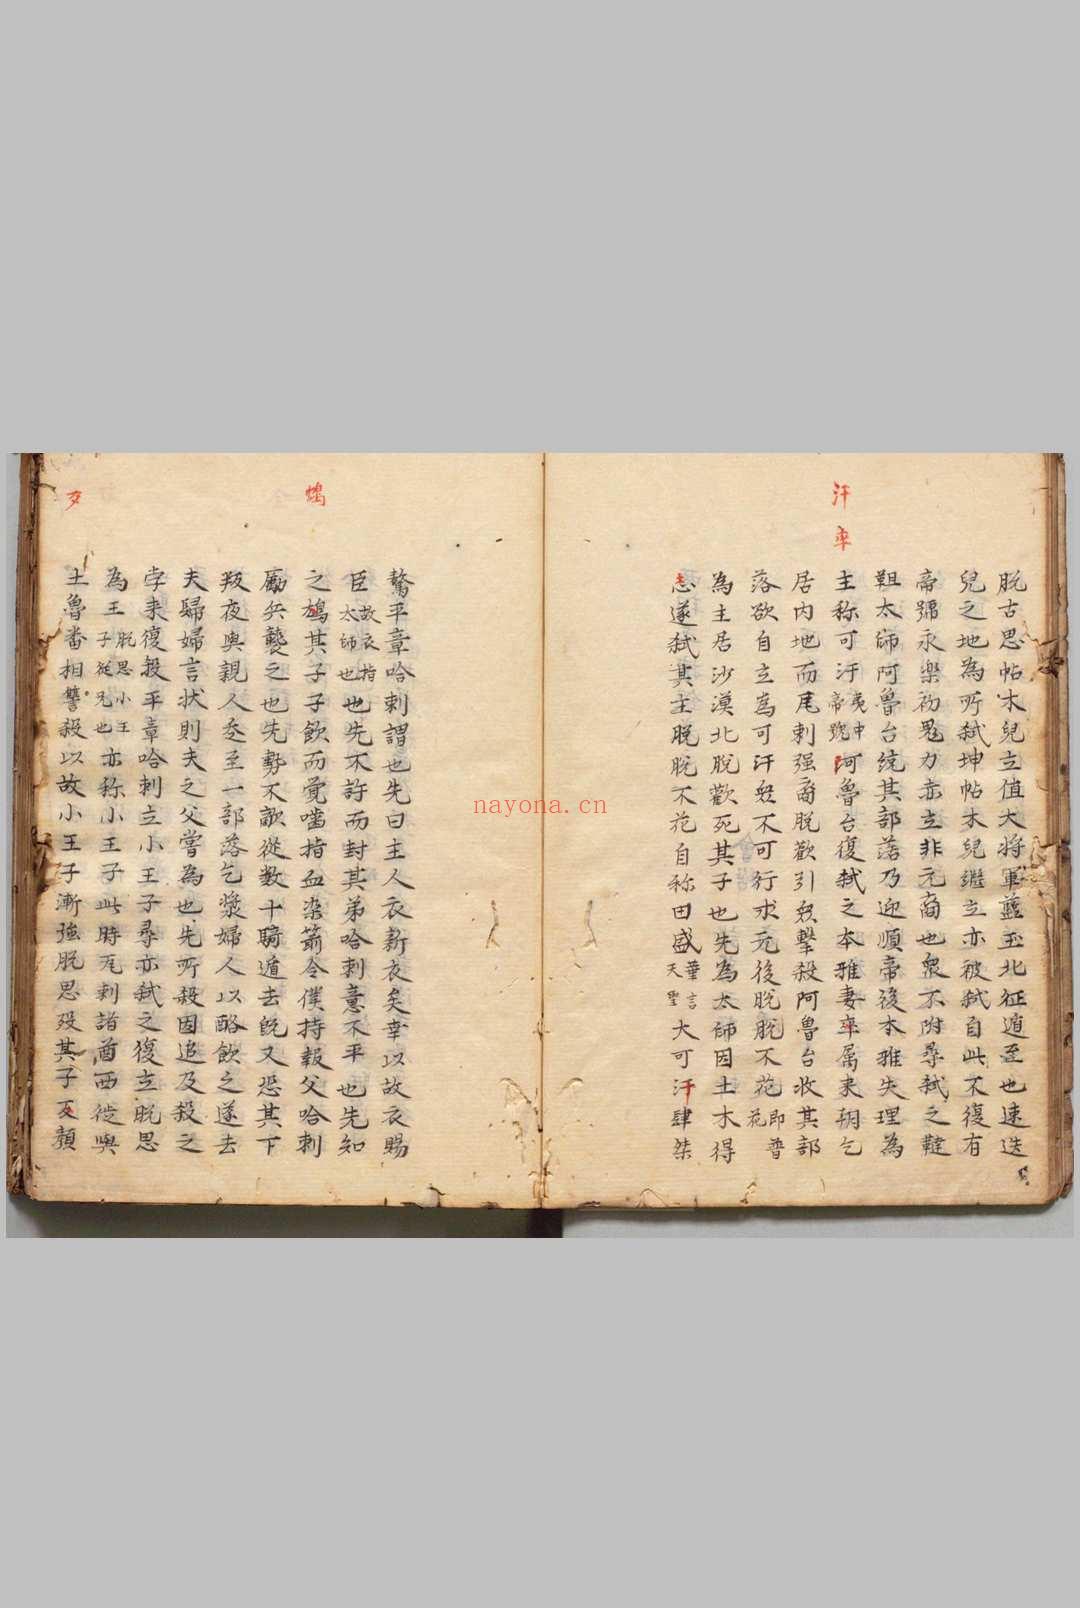 汗
率
脫古思帖木兒立值大將軍藍玉北征遁至也速迭
兒之地為所弑坤帖木兒繼立亦被弑自此不復有
帝號永樂初鬼力赤立非元裔也衆不附尋弑之韃
靼太師阿魯台統其部落乃迎順帝後本雅失理為
主称可汗夷中帝號阿魯台復弑之本雅妻率属来朝乞
居内地而瓦剌强裔脫歡引眾擊殺阿魯台收其部
落欲自立為可汗眾不可行求元後脫脫不花即普花
為主居沙漠北脫歡死其子也先為太師因土木得
志遂弑其主脫脫不花自称田盛華言天聖大可汗肆桀
鴆
歹
驁平章哈剌謂也先曰主人衣新衣矣幸以故衣賜
臣故衣指太師也也先不許而封其弟哈剌意不平也先知
之鴆其子子飲而覺嚙指血染箭令僕持報父哈剌
勵兵襲之也先勢不敵從数十騎遁去既又恐其下
叛夜與親人奔至一部落乞漿婦人以酪飲之遂去
夫歸婦言状則夫之父嘗為也先所殺因追及殺之
孛来復殺平章哈剌立小王子尋亦弑之復立脫思
為王脫思小王子從兄也亦称小王子此時瓦剌諸酋西徙與
土魯番相讐殺以故小王子漸強脫思歿其子歹顏
nayona.cn